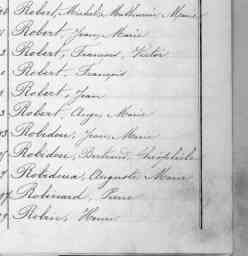 Robert, Michel, Mathurin, Marie
Robert, Jean, Marie
Robert, Francois, Victor
Robert, François
Robert, Jean
Robert, Ange, Marie
Robidou, Jean, Marie
Robidou, Bertrand, Théophile
Robidoux, Auguste, Marie
Robinard, Pierre
Robin, Henri